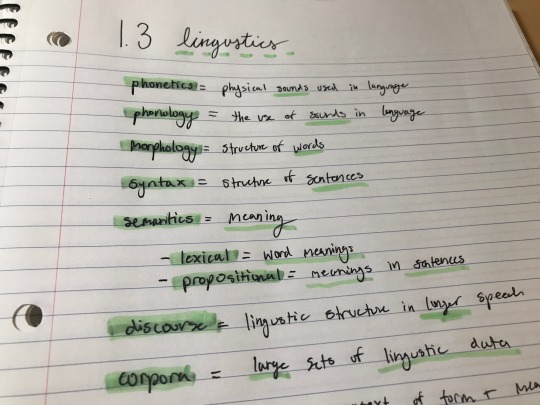 1.3 lingustics
phonetics = physical sounds used in language
phonology = the use of sounds in language
morphology = structure of words
syntax = structure of sentences
semantics = meaning
- lexical = word meanings
- propositional = meanings in sentences
discourse = lingustic structure in longer speech
corpora = large sets of lingustic data
of form +